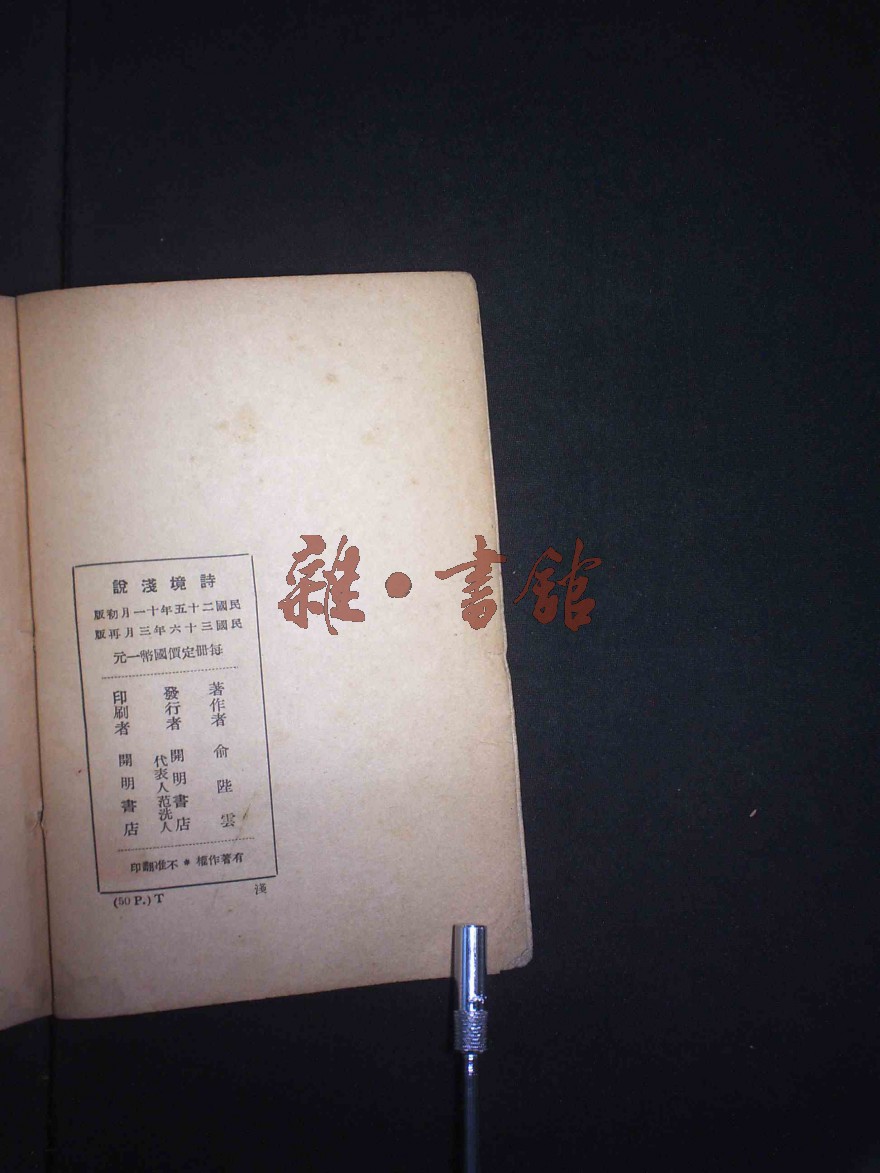 詩境淺說
民國二十五年十一月初版
民國三十六年三月再版
每冊定價國幣一元
著作者 俞陛雲
發行者 開明書店
代表人范洗人
印刷者 開明書店
有著作權＊不准翻印
(50 P.) T
淺
雜·書館